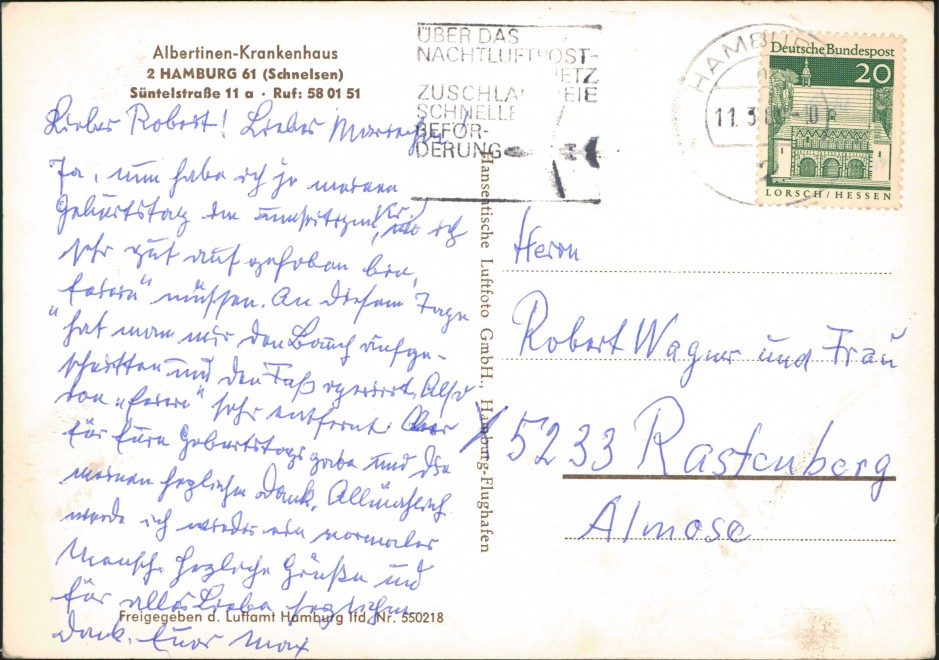 Albertinen-Krankenhaus
2 HAMBURG 61 (Schnelsen)
Süntelstraße 11 a · Ruf: 58 01 51
Lieber Robert! Liebes
Ja, nun habe ich je meinen
Geburtstag im wo ich
sehr gut aufgehoben bin,
"feiern" müssen. An diesem Tage
hat man mir den Bauch aufge-
schnitten und den operiert. Also
von "feiern" sehr entfernt. Aber
für Eure Geburtstagsgabe und die
meinen herzlichen Dank. Allmählich
werde ich wieder ein normaler
Mensch. Herzliche Grüße und
für alles Liebe herzlichen
Dank. Euer Max
Freigegeben d. Luftamt Hamburg lfd. Nr. 550218
Hanseatische Luftfoto GmbH., Hamburg-Flughafen
ÜBER DAS
NACHTLUFTPOST-
NETZ
ZUSCHLAGFREIE
SCHNELLE
BEFÖR-
DERUNG
HAMBURG
11.3.
2
Deutsche Bundespost
20
LORSCH/HESSEN
Herrn
Robert Wagner und Frau
5233 Rastenberg
Almose